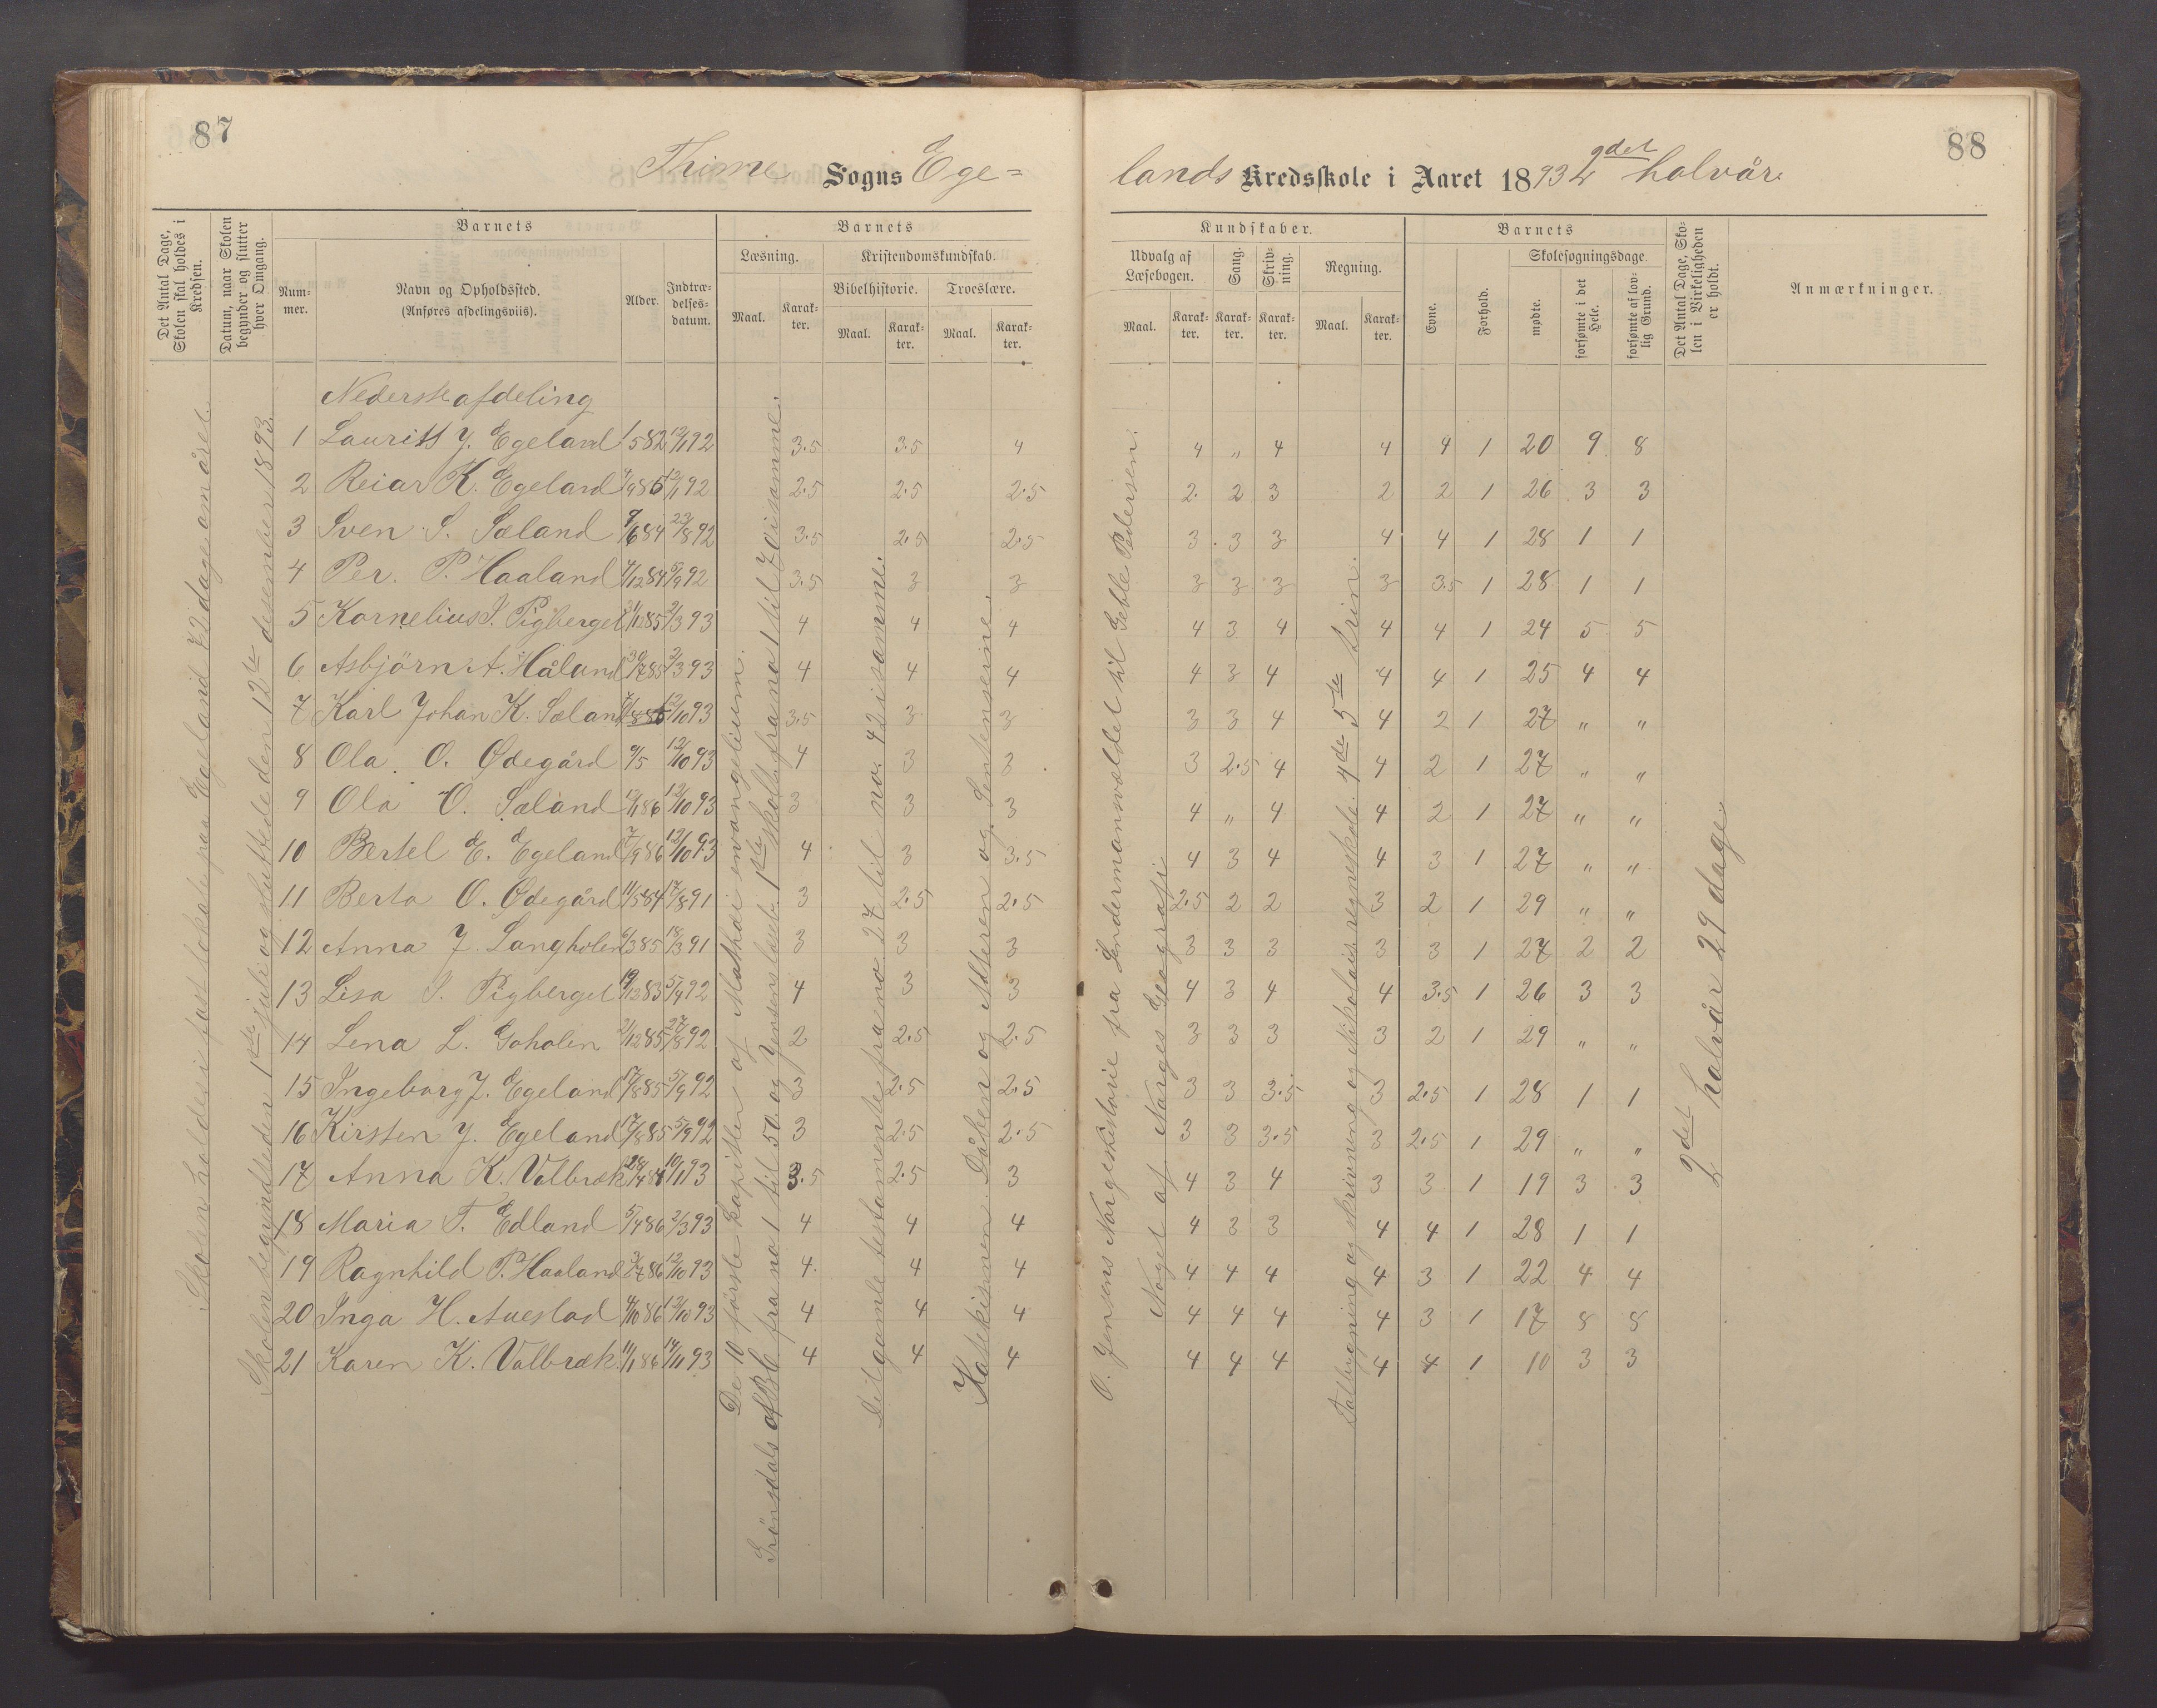 87
88
Thime Sogns Ege=
lands Kredsskole i Aaret 1893 2det halvår.
Det Antal Dage, Skolen skal holdes i Kredsen.
Datum, naar Skolen begynder og slutter hver Omgang.
Barnets
Num-mer.
Navn og Opholdssted.
(Anføres afdelingsviis).
Alder.
Indtræ-delses-datum.
Barnets
Læsning.
Maal.
Karak-ter.
Kristendomskundskab.
Bibelhistorie.
Maal.
Karak-ter.
Troeslære.
Maal.
Karak-ter.
Kundskaber.
Udvalg af Læsebogen.
Maal.
Karak-ter.
Sang.
Karak-ter.
Skriv-ning.
Karak-ter.
Regning.
Maal.
Karak-ter.
Barnets
Evne.
Forhold.
Skolesøgningsdage.
mødte.
forsømte i det Hele.
forsømte af lov-lig Grund.
Det Antal Dage, Sko-len i Virkeligheden er holdt.
Anmærkninger.
Skolen holdes i fast lokale paa Egeland 72 dage om året.
Skolen begyndte den 1ste juli og sluttede den 12te desember 1893.
De 10 første kapitler af Mathæi evangelium.
fra no 1 til 50 og Jensens læseb. 1ste skolta fra no 1 til 70 isamme.
Det gamle testamente fra no. 27 til no. 42 isamme.
Katekismen. Dåben og Alteren og Sentenserne.
O. Jensens Norgeshistorie fra Lendermannsvældet til Geble Pedersen.
Noget af Norges Geografi
Talbygning og skrivning og Nikolais. regneskole. 4de 5te trin.
2det halvår 29 dage
Nederste afdeling
1 Lauritts J. Egeland 1/5 82 12/1 92 3.5 3.5 4 4 " 4 4 4 1 20 9 8
2 Reiar K. Egeland 4/9 85 12/1 92 2.5 2.5 2.5 2. 2 3 2 2 1 26 3 3
3 Sven S. Sæland 9/6 84 23/8 92 3.5 2.5 2.5 3 3 3 4 4 1 28 1 1
4 Per. P. Haaland 4/12 84 5/9 92 3.5 3 3 3 3 3 3 3.5 1 28 1 1
5 Kornelius S. Pigberget 3/11 85 2/3 93 4 4 4 4 3 4 4 4 1 24 5 5
6 Asbjörn A. Håland 30/7 85 2/3 93 4 4 4 4 3 4 4 4 1 25 4 4
7 Karl Johan K. Sæland 12/10 93 3.5 3 3 3 3 4 4 2 1 27 " "
8 Ola. O. Ødegård 9/5 12/10 93 4 3 3 3 2.5 4 4 2 1 27 " "
9 Ola O. Sæland 12/1 86 12/10 93 3 3 3 4 " 4 4 2 1 27 " "
10 Bertel E. Egeland 7/9 86 12/10 93 4 3 3.5 4 3 4 4 3 1 27 " "
11 Berta O. Ødegård 11/5 84 17/8 91 3 2.5 2.5 2.5 2 2 3 2 1 29 " "
12 Anna J. Langholen 6/3 85 18/3 91 3 3 3 3 3 3 3 3 1 27 2 2
13 Lisa S. Pigberget 19/12 83 5/4 92 4 3 3 4 3 4 4 3.5 1 26 3 3
14 Lena L. Goholen 2/12 85 27/8 92 2 2.5 2.5 3 3 3 3 2 1 29 " "
15 Ingeborg J. Egeland 17/8 85 5/9 92 3 2.5 2.5 3 3 3.5 3 2.5 1 28 1 1
16 Kirsten J. Egeland 17/8 85 5/9 92 3 2.5 2.5 3 3 3.5 3 2.5 1 29 " "
17 Anna K. Valbræk 28/4 84 10/1 93 3.5 2.5 3 4 3 4 3 3 1 19 3 3
18 Maria T. Edland 5/4 86 2/3 93 4 4 4 4 3 3 4 4 1 28 1 1
19 Ragnhild P. Haaland 3/7 86 12/10 93 4. 4 4 4 4 4 4 3 1 22 4 4
20 Inga H. Auestad 4/10 86 12/10 93 4 4 4 4 4 4 4 3 1 17 8 8
21 Karen K. Valbræk. 11/1 86 14/11 93 4 4 4 4 4 4 4 4 1 10 3 3